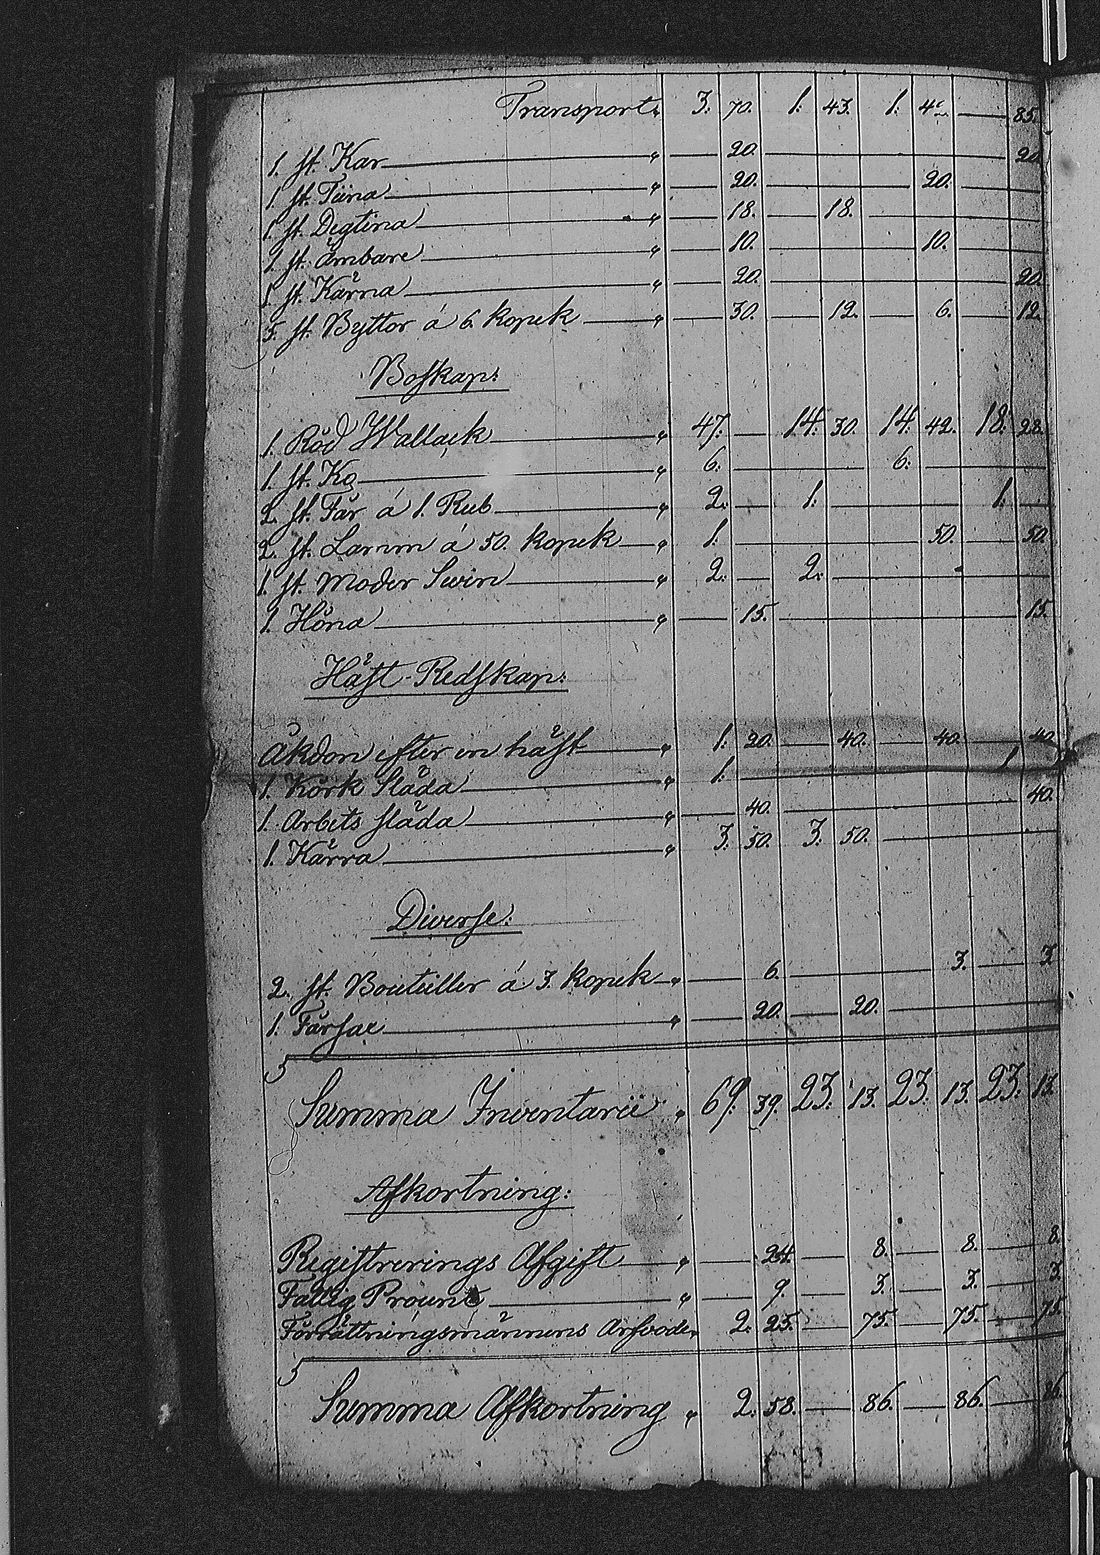 Transport „ 3. 70. 1. 43. 1. 4 — 85.
1. st. Kar „ — 20. — 20
1. st. Tiina „ — 20. — 20. —
1. st. Degtina „ — 18. — 18. —
2. st. Ämbare „ — 10. — 10. —
1. st. Kärna „ — 20. — 20.
5. st. Byttor á 6. kopek „ — 30. — 12. — 6. — 12.
Boskap:
1. Röd Wallack „ 47. — 14. 30. 14. 42. 18. 28.
1. st. Ko „ 6. — 6. —
2. st. Får á 1. Rub „ 2. — 1. — 1. —
2. st. Lamm á 50. kopek „ 1. — 50. — 50
1. st. Moder Swin „ 2. — 2. —
1. Höna „ — 15. — 15.
Häst-Redskap:
Åkdon efter en häst „ 1. 20. — 40. — 40. — 40.
1. Körk Släda „ 1. — 1
1. Arbets släda „ — 40. — 40.
1. Kärra „ 3. 50. 3. 50. —
Diverse:
2. st. Bouteiller á 3. kopek „ — 6. — 3. — 3
1. Fårsax „ — 20. — 20. —
Summa Inventarii „ 69. 39. 23. 13. 23. 13. 23. 13.
Afkortning:
Registrerings Afgift „ — 24. — 8. — 8. — 8.
Fattig Procent „ — 9. — 3. — 3. — 3.
Förrättningsmännens Arfvode „ 2. 25. — 75. — 75. — 75.
Summa Afkortning „ 2. 58. — 86. — 86. — 86.